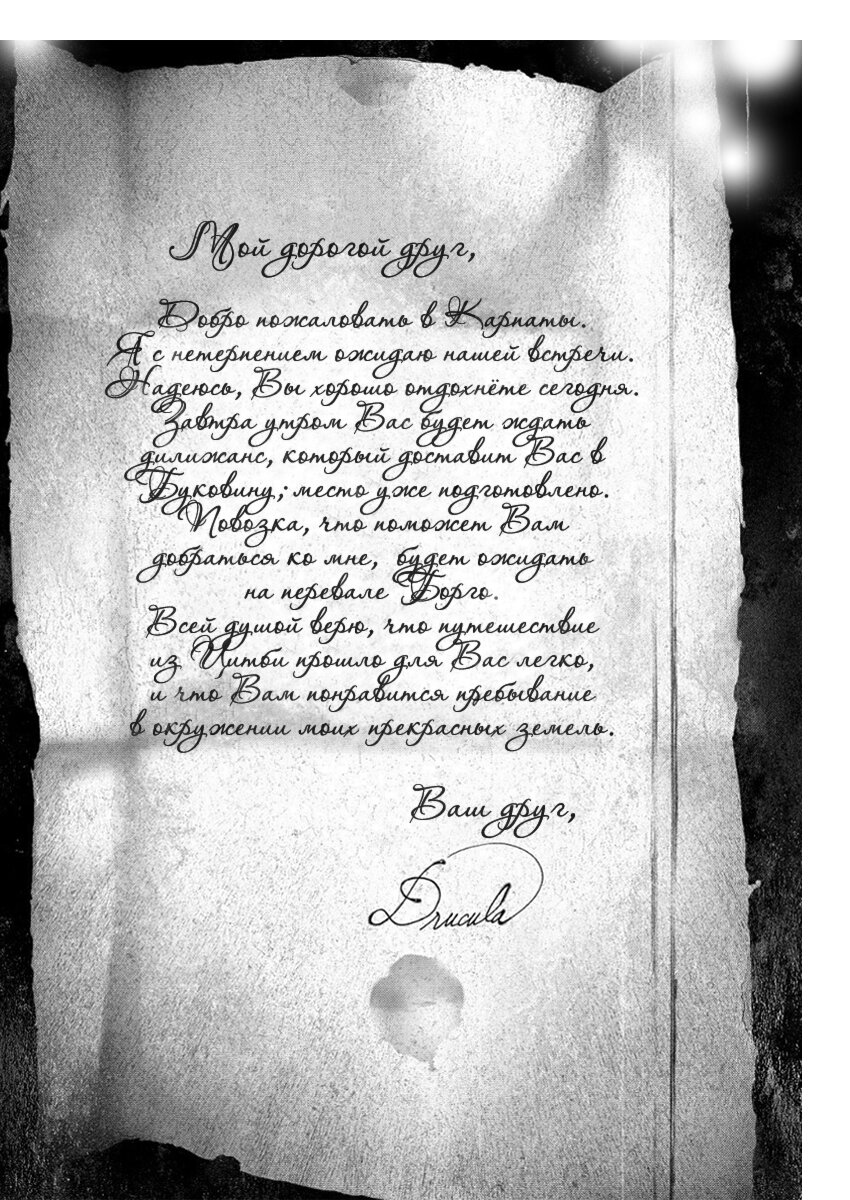 Мой дорогой друг,
Добро пожаловать в Карпаты.
Я с нетерпением ожидаю нашей встречи.
Надеюсь, Вы хорошо отдохнёте сегодня.
Завтра утром Вас будет ждать
дилижанс, который доставит Вас в
Буковину; место уже подготовлено.
Повозка, что поможет Вам
добраться ко мне, будет ожидать
на перевале Борго.
Всей душой верю, что путешествие
из Уитби прошло для Вас легко,
и что Вам понравится пребывание
в окружении моих прекрасных земель.
Ваш друг,
Drucula